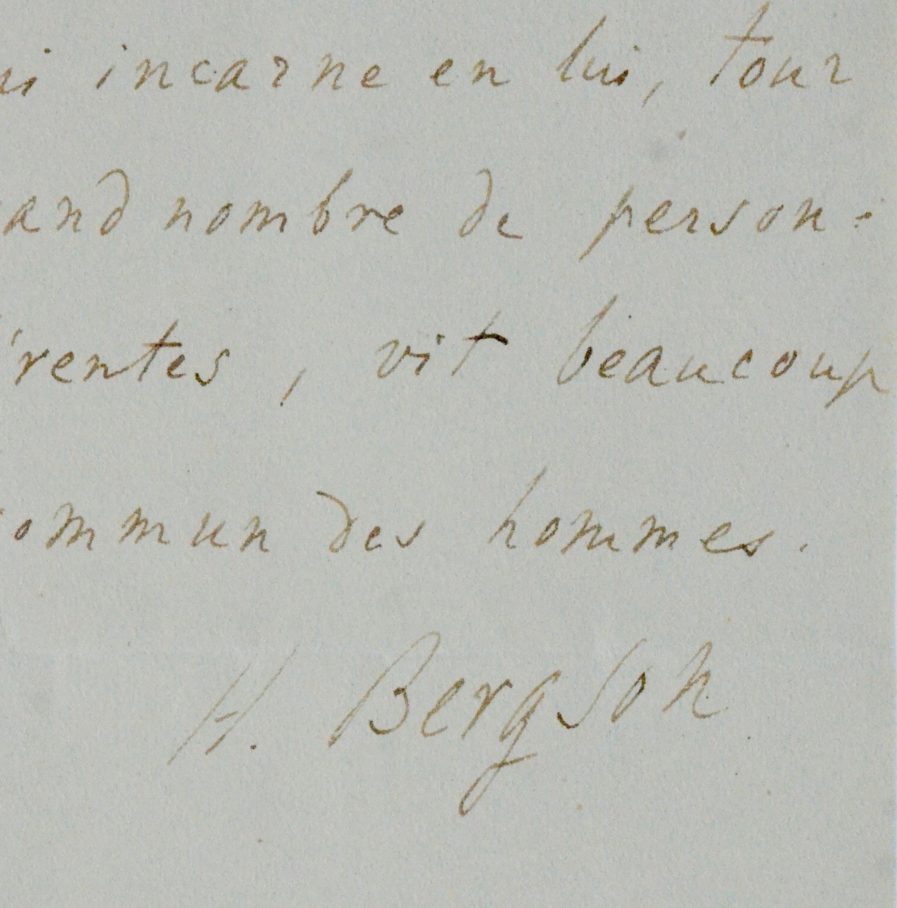 ui incarne en lui, tour
and nombre de person-
érentes, vit beaucoup
ommun des hommes.
H. Bergson